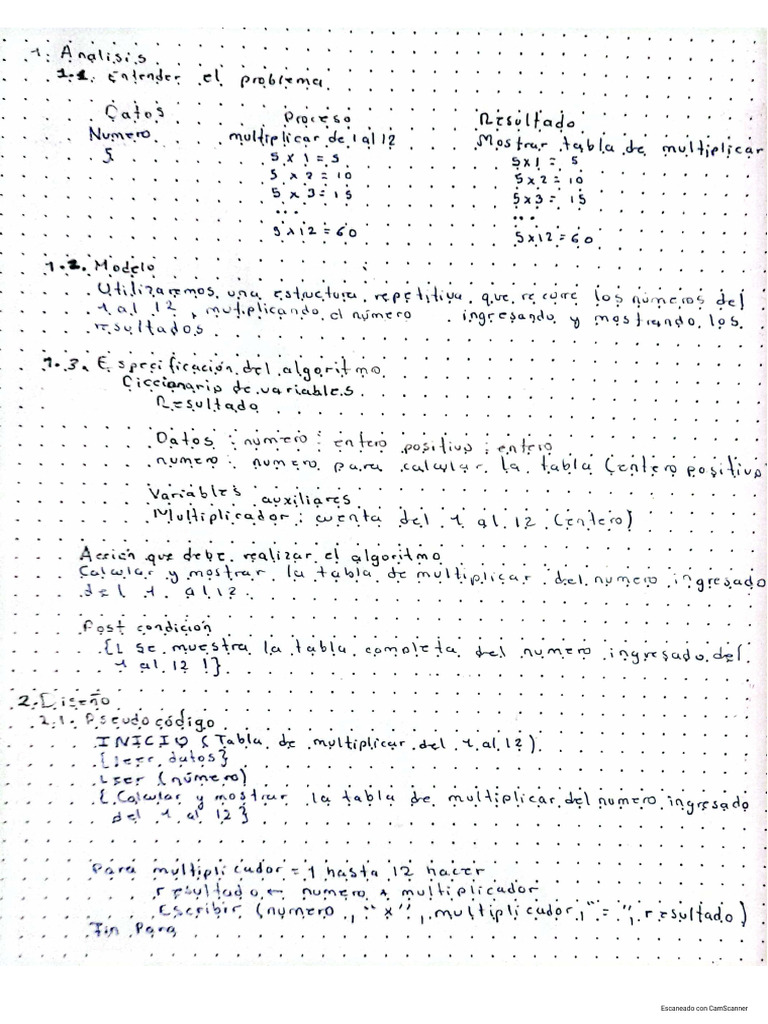 1. Analisis
1.1. Entender el problema
Datos Proceso Resultado
Numero multiplicar de 1 al 12 Mostrar tabla de multiplicar
5 5 x 1 = 5 5 x 1 = 5
5 x 2 = 10 5 x 2 = 10
5 x 3 = 15 5 x 3 = 15
... ...
5 x 12 = 60 5 x 12 = 60
1.2. Modelo
Utilizaremos una estructura repetitiva que recorre los números del
1 al 12, mutiplicando el número ingresando y mostrando los
resultados
1.3. Especificación del algoritmo
Diccionario de variables
Resultado
Datos : numero : entero positivo : entero
numero : numero para calcular la tabla (entero positivo
Variables auxiliares
Multiplicador : cuenta del 1 al 12 (entero)
Acción que debe realizar el algoritmo
Calcular y mostrar la tabla de multiplicar del numero ingresado
del 1 al 12
Post condición
{L se muestra la tabla completa del numero ingresado del
1 al 12 !}
2. Diseño
2.1. Pseudo código
INICIO (Tabla de multiplicar del 1 al 12)
{leer datos}
Leer (número)
{Calcular y mostrar la tabla de multiplicar del numero ingresado
del 1 al 12}
Para multiplicador = 1 hasta 12 hacer
resultado ← numero * multiplicador
Escribir (numero, "x", multiplicador, "=", resultado)
Fin Para
Escaneado con CamScanner